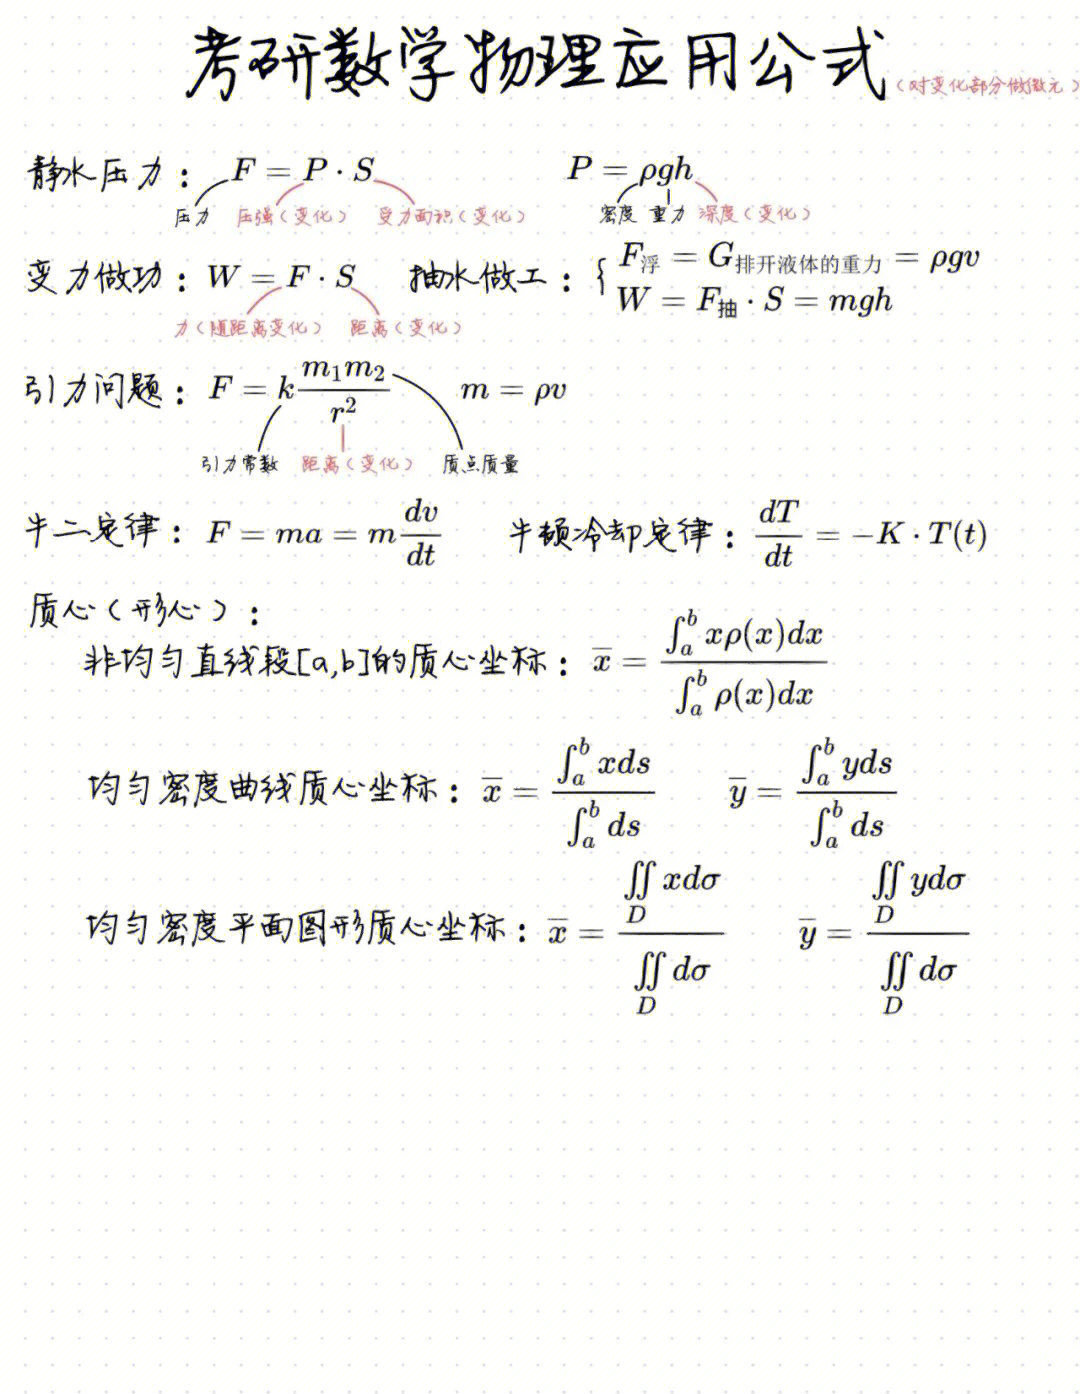 考研数学物理应用公式（对变化部分做微元）
静水压力： F = P · S P = ρgh
压力 压强（变化） 受力面积（变化） 密度 重力 深度（变化）
变力做功： W = F · S 抽水做工：{ F浮 = G排开液体的重力 = ρgv
W = F抽 · S = mgh
力（随距离变化） 距离（变化）
引力问题： F = k m₁m₂/r² m = ρv
引力常数 距离（变化） 质点质量
牛二定律： F = ma = m dv/dt 牛顿冷却定律： dT/dt = −K · T(t)
质心（形心）：
非均匀直线段[a,b]的质心坐标： x̄ = ∫ₐᵇ xρ(x)dx / ∫ₐᵇ ρ(x)dx
均匀密度曲线质心坐标： x̄ = ∫ₐᵇ xds / ∫ₐᵇ ds ȳ = ∫ₐᵇ yds / ∫ₐᵇ ds
均匀密度平面图形质心坐标： x̄ = ∬_D xdσ / ∬_D dσ ȳ = ∬_D ydσ / ∬_D dσ